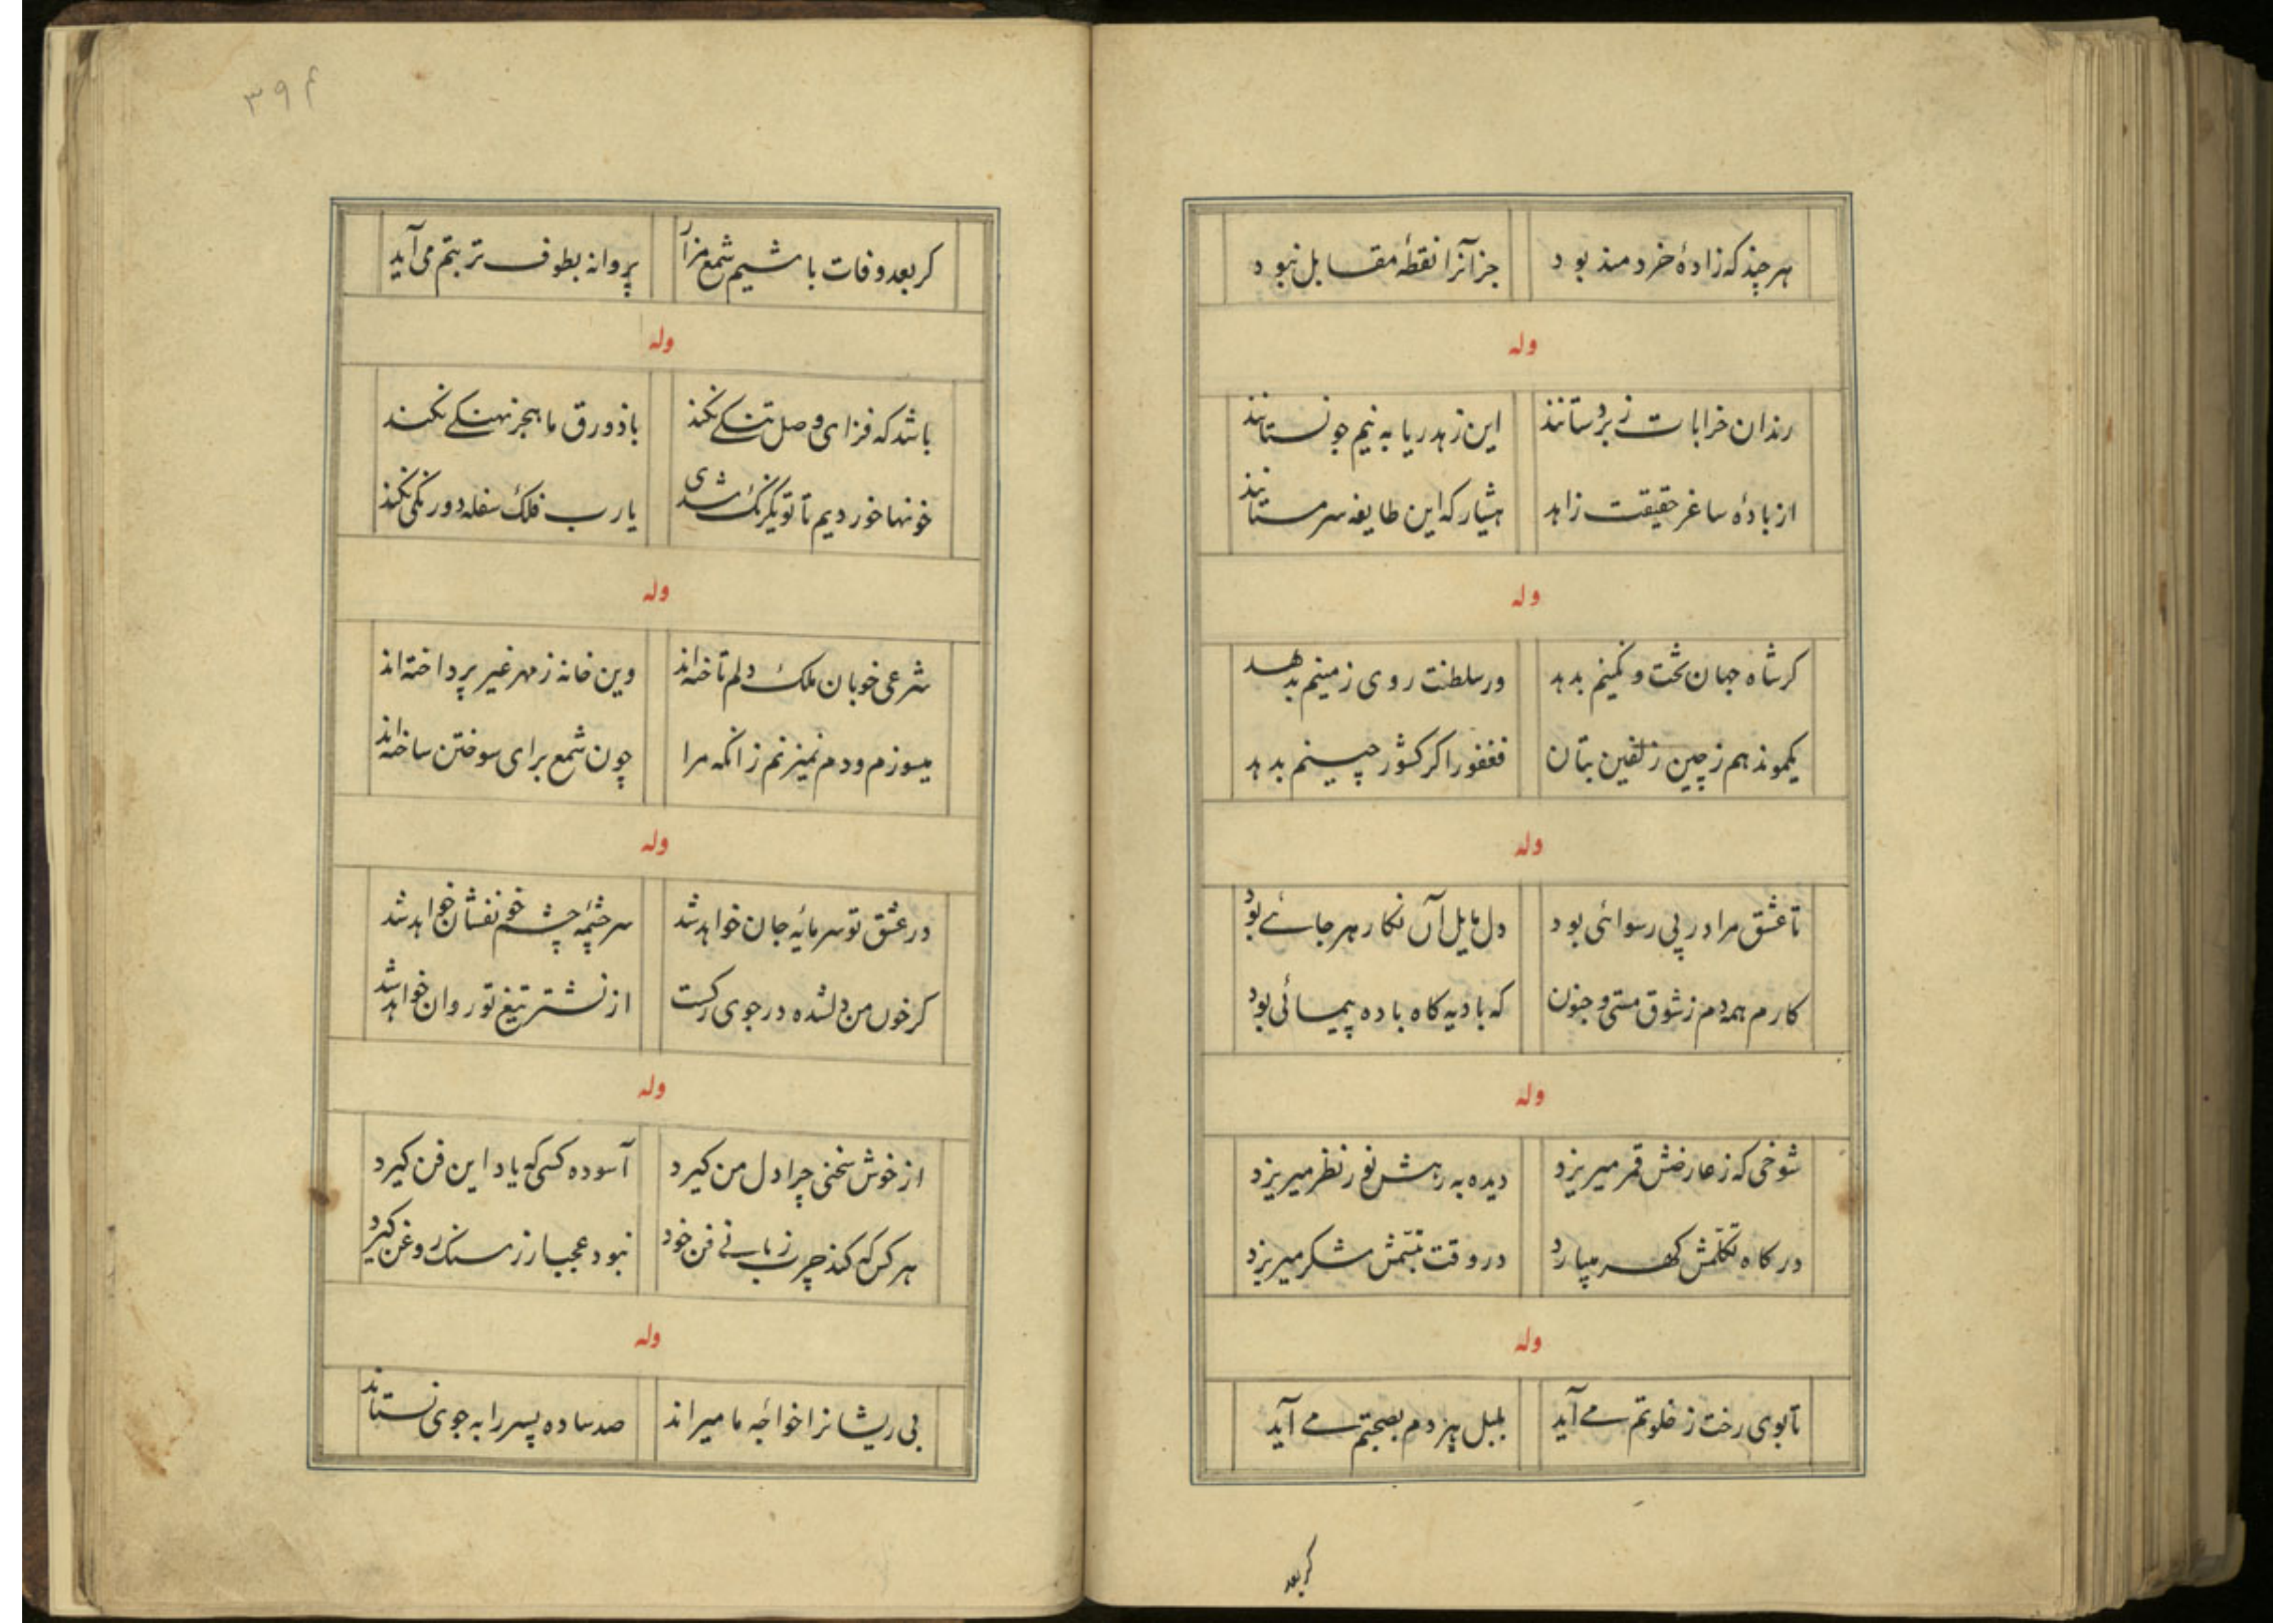 هر چند که زادهٔ خردمند بود جز آنرا نقطهٔ مقابل نبود
وله
رندان خرابات زبردستانند این زهد ریا به نیم جو نستانند
از بادهٔ ساغر حقیقت زاهد هشیار که این طایفه سرمستانند
وله
کر شاه جهان تخت و نکینم بدهد ور سلطنت روی زمینم بدهد
یکمو ندهم ز چین زلفین بتان فغفور اکر کشور چینم بدهد
وله
تا عشق مرا در پی رسوائی بود دل مایل آن نکار هر جائے بود
کارم همه دم ز شوق مستی و جنون که بادیه کاه باده پیمائی بود
وله
شوخی که ز عارضش قمر میریزد دیده به رهش نور نظر میریزد
در کاه تکلّمش کهر میبارد در وقت تبسّمش شکر میریزد
وله
تا بوی رخت ز خلوتم مے آید بلبل پیر دم بصحبتم مے آید
کر بعد
۳۹۴
کر بعد وفات باشیم شمع مزار پروانه بطوف تربتم می آید
وله
باشد که فزای وصل تنکے نکند با ذورق ما هجر نهنکے نکند
خونها خوردیم تا تو یکرنک شدی یارب فلک سفله دورنکی نکند
وله
شرعی خوبان ملک دلم تاخته اند وین خانه ز مهر غیر پرداخته اند
میسوزم و دم نمیزنم زانکه مرا چون شمع برای سوختن ساخته اند
وله
در عشق تو سرمایهٔ جان خواهد شد سرچشمهٔ چشم خونفشان خواهد شد
کر خون من دلشده در جوی رکست از نشتر تیغ تو روان خواهد شد
وله
از خوش سخنی چرا دل من کیرد آسوده کسی که یاد این فن کیرد
هر کس که کند چرب زبانے فن خود نبود عجب ار ز سنک روغن کیرد
وله
بی ریشانرا خواجهٔ ما میراند صد ساده پسر را به جوی نستاند